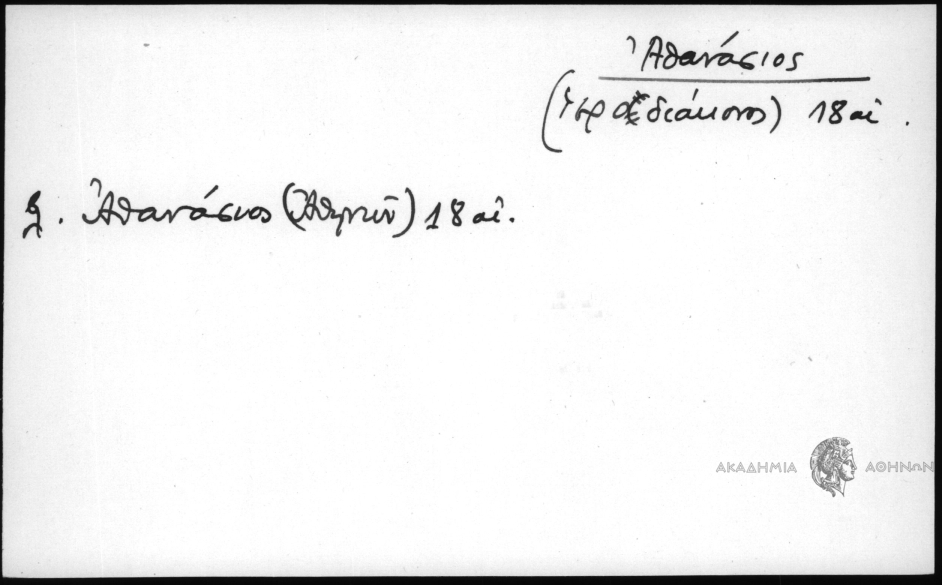 Ἀθανάσιος
(ἱεροδιάκονος) 18 αἰ.
Ἀθανάσιος (Ἀθηνῶν) 18 αἰ.
ΑΚΑΔΗΜΙΑ ΑΘΗΝΩΝ